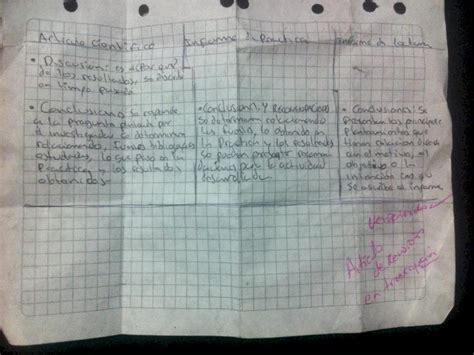 Articulo Cientifico
Informe de Practica
Informe de Lectura
• Discusion: es decir por que
de los resultados, se discute
en tiempo pasado
• Conclusiones: se responde
a la pregunta planteada por
el investigador se determinan
relacionando, fuentes bibliograficas
estudiadas, lo que paso en la
Practica y los resultados
obtenidos
• Conclusiones y Recomendaciones
se determinan relacionando
las fuentes, lo obtenido en
la Practica y los resultados
se pueden proponer recomen
daciones para la actividad
desarrollada
• Conclusiones: Se
presentan los principales
planteamientos que
tienen relacion directa
con el motivo, el
objetivo o la
intencion con que
se escribe el informe
Articulo
de Revision